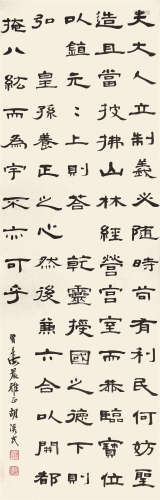 夫大人立制義必隨時苟有利民何妨聖
造且當披拂山林經營宮室而恭臨寶位
以鎮元〻上則答乾靈授國之德下則
弘皇孫養正之心然後兼六合以開都
掩八紘而為宇不亦可乎
雅正 胡漢民